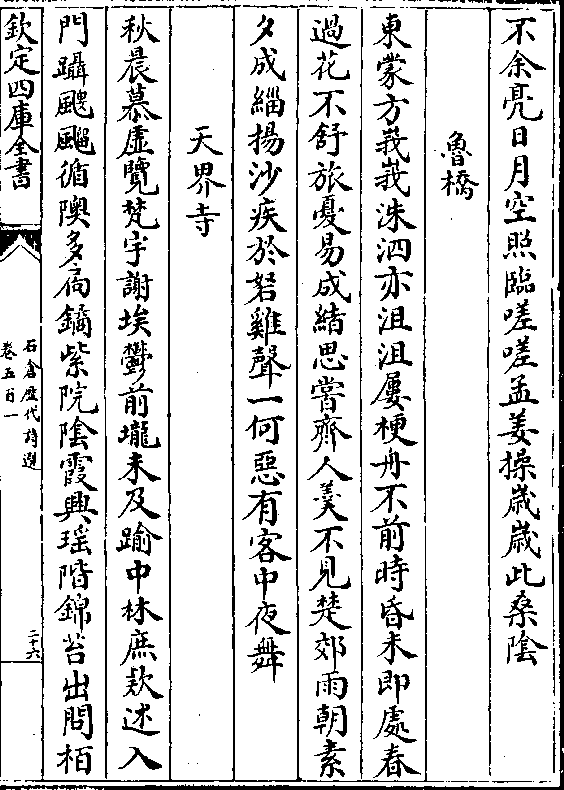 不余亮日月空照臨嗟嗟孟姜操歳歳此桑陰
魯橋
東蒙方峩峩洙泗亦沮沮屢梗舟不前時昏未即處春
過花不舒旅憂易成結思嘗齊人羮不見楚郊雨朝素
夕成緇揚沙疾於弩雞聲一何惡有客中夜舞
天界寺
秋晨慕虚覽梵宇謝埃鬱前壠未及踰中林庶欵述入
門躡颸颸循隩多扄鐍紫院陰霞興瑶階錦苔出問栢
欽定四庫全書
石倉歴代詩選
卷五百一
二十六